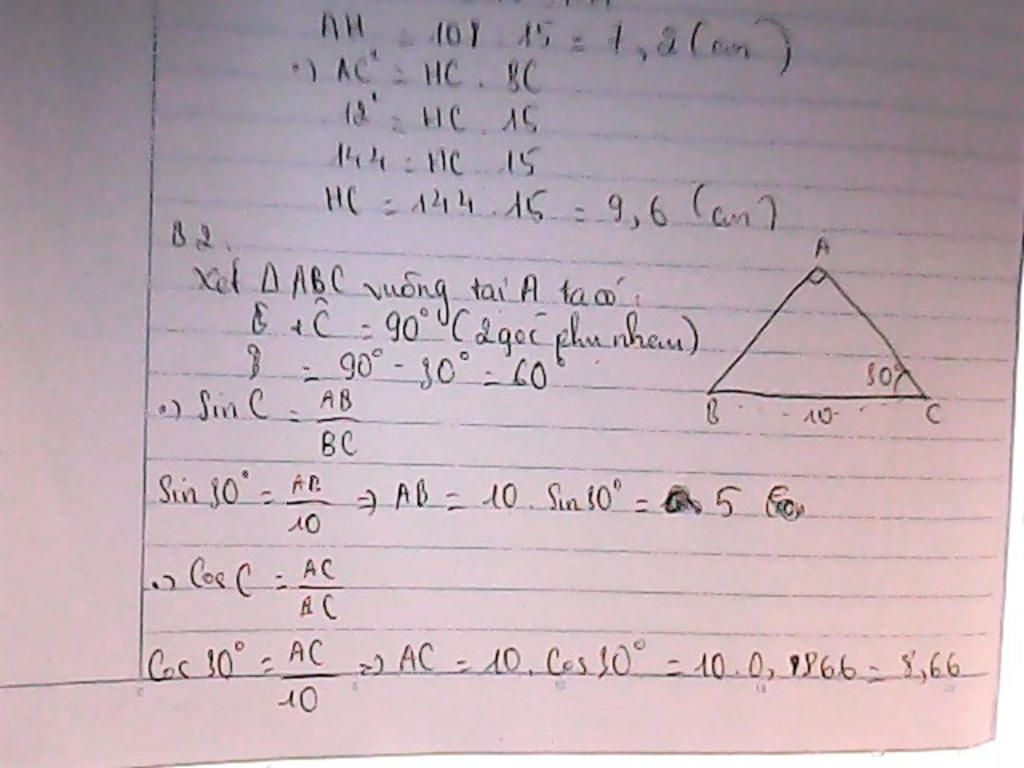 AH = 108 . 15 = 7,2 (cm)
•) AC² = HC . BC
12² = HC . 15
144 = HC . 15
HC = 144 . 15 = 9,6 (cm)
B2.
Xét Δ ABC vuông tại A ta có:
B̂ + Ĉ = 90° (2 góc phụ nhau)
B̂ = 90° - 30° = 60°
A
30°
B
10
C
•) Sin C = AB
BC
Sin 30° = AB ⇒ AB = 10 . Sin 30° = 5
10
•) Cos C = AC
BC
Cos 30° = AC ⇒ AC = 10 . Cos 30° = 10 . 0,866 = 8,66
10